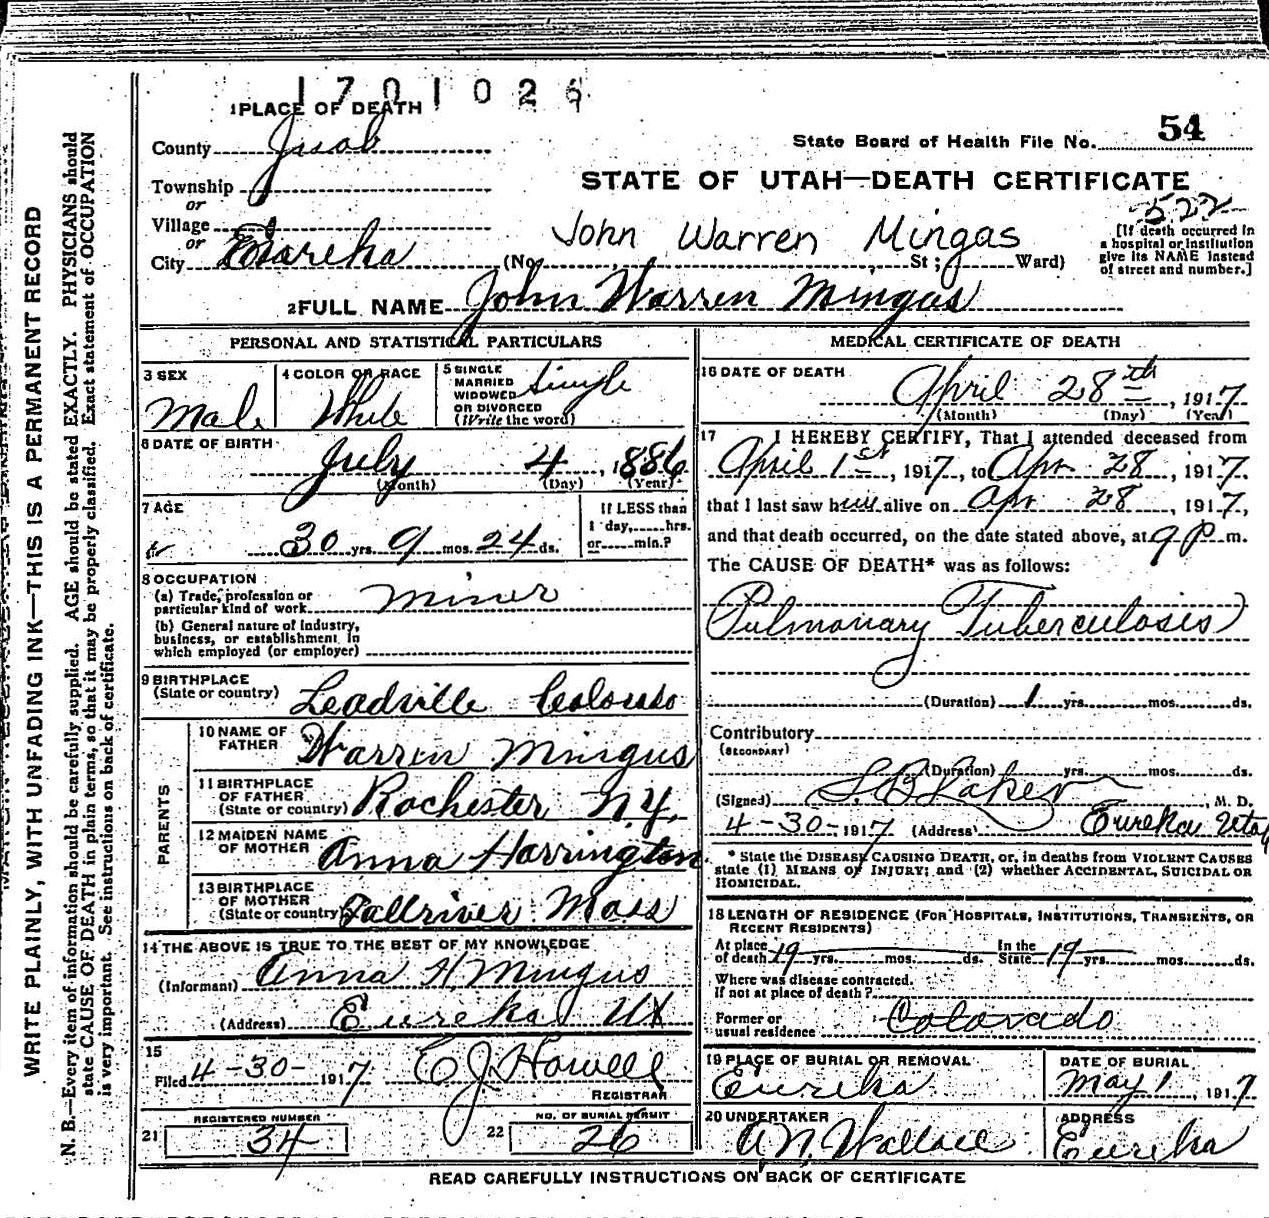 1701026
1 PLACE OF DEATH
County Juab
State Board of Health File No. 54
Township
or
STATE OF UTAH—DEATH CERTIFICATE
522
Village
or
City Eureka
John Warren Mingas
(No. St; Ward)
[If death occurred in
a hospital or institution
give its NAME instead
of street and number.]
2 FULL NAME John Warren Mingus
PERSONAL AND STATISTICAL PARTICULARS
3 SEX
Male
4 COLOR OR RACE
White
5 SINGLE
MARRIED
WIDOWED
OR DIVORCED
(Write the word)
Single
6 DATE OF BIRTH
July 4, 1886
(Month) (Day) (Year)
7 AGE
30 yrs. 9 mos. 24 ds.
If LESS than
1 day, hrs.
or min.?
8 OCCUPATION
(a) Trade, profession or
particular kind of work miner
(b) General nature of industry,
business, or establishment in
which employed (or employer)
9 BIRTHPLACE
(State or country) Leadville Colorado
PARENTS
10 NAME OF
FATHER Warren Mingus
11 BIRTHPLACE
OF FATHER
(State or country) Rochester N.Y.
12 MAIDEN NAME
OF MOTHER Anna Harrington
13 BIRTHPLACE
OF MOTHER
(State or country) Fallriver Mass
14 THE ABOVE IS TRUE TO THE BEST OF MY KNOWLEDGE
(Informant) Anna H. Mingus
(Address) Eureka Ut
15
Filed 4-30-1917 E J Howell
REGISTRAR
21 REGISTERED NUMBER
34
22 NO. OF BURIAL PERMIT
26
MEDICAL CERTIFICATE OF DEATH
16 DATE OF DEATH
April 28th, 1917
(Month) (Day) (Year)
17 I HEREBY CERTIFY, That I attended deceased from
April 1st, 1917, to Apr 28, 1917,
that I last saw him alive on Apr 28, 1917,
and that death occurred, on the date stated above, at 9 P m.
The CAUSE OF DEATH* was as follows:
Pulmonary Tuberculosis
(Duration) 1 yrs. mos. ds.
Contributory
(SECONDARY)
(Duration) yrs. mos. ds.
(Signed) , M. D.
4-30-1917 (Address) Eureka Utah
* State the DISEASE CAUSING DEATH, or, in deaths from VIOLENT CAUSES
state (1) MEANS OF INJURY; and (2) whether ACCIDENTAL, SUICIDAL OR
HOMICIDAL.
18 LENGTH OF RESIDENCE (FOR HOSPITALS, INSTITUTIONS, TRANSIENTS, OR
RECENT RESIDENTS)
At place
of death 19 yrs. mos. ds.
In the
State 19 yrs. mos. ds.
Where was disease contracted.
If not at place of death?
Former or
usual residence Colorado
19 PLACE OF BURIAL OR REMOVAL
Eureka
DATE OF BURIAL
May 1, 1917
20 UNDERTAKER
A. N. Wallace
ADDRESS
Eureka
READ CAREFULLY INSTRUCTIONS ON BACK OF CERTIFICATE
WRITE PLAINLY, WITH UNFADING INK—THIS IS A PERMANENT RECORD
N. B.—Every item of information should be carefully supplied. AGE should be stated EXACTLY. PHYSICIANS should
state CAUSE OF DEATH in plain terms, so that it may be properly classified. Exact statement of OCCUPATION
is very important. See instructions on back of certificate.